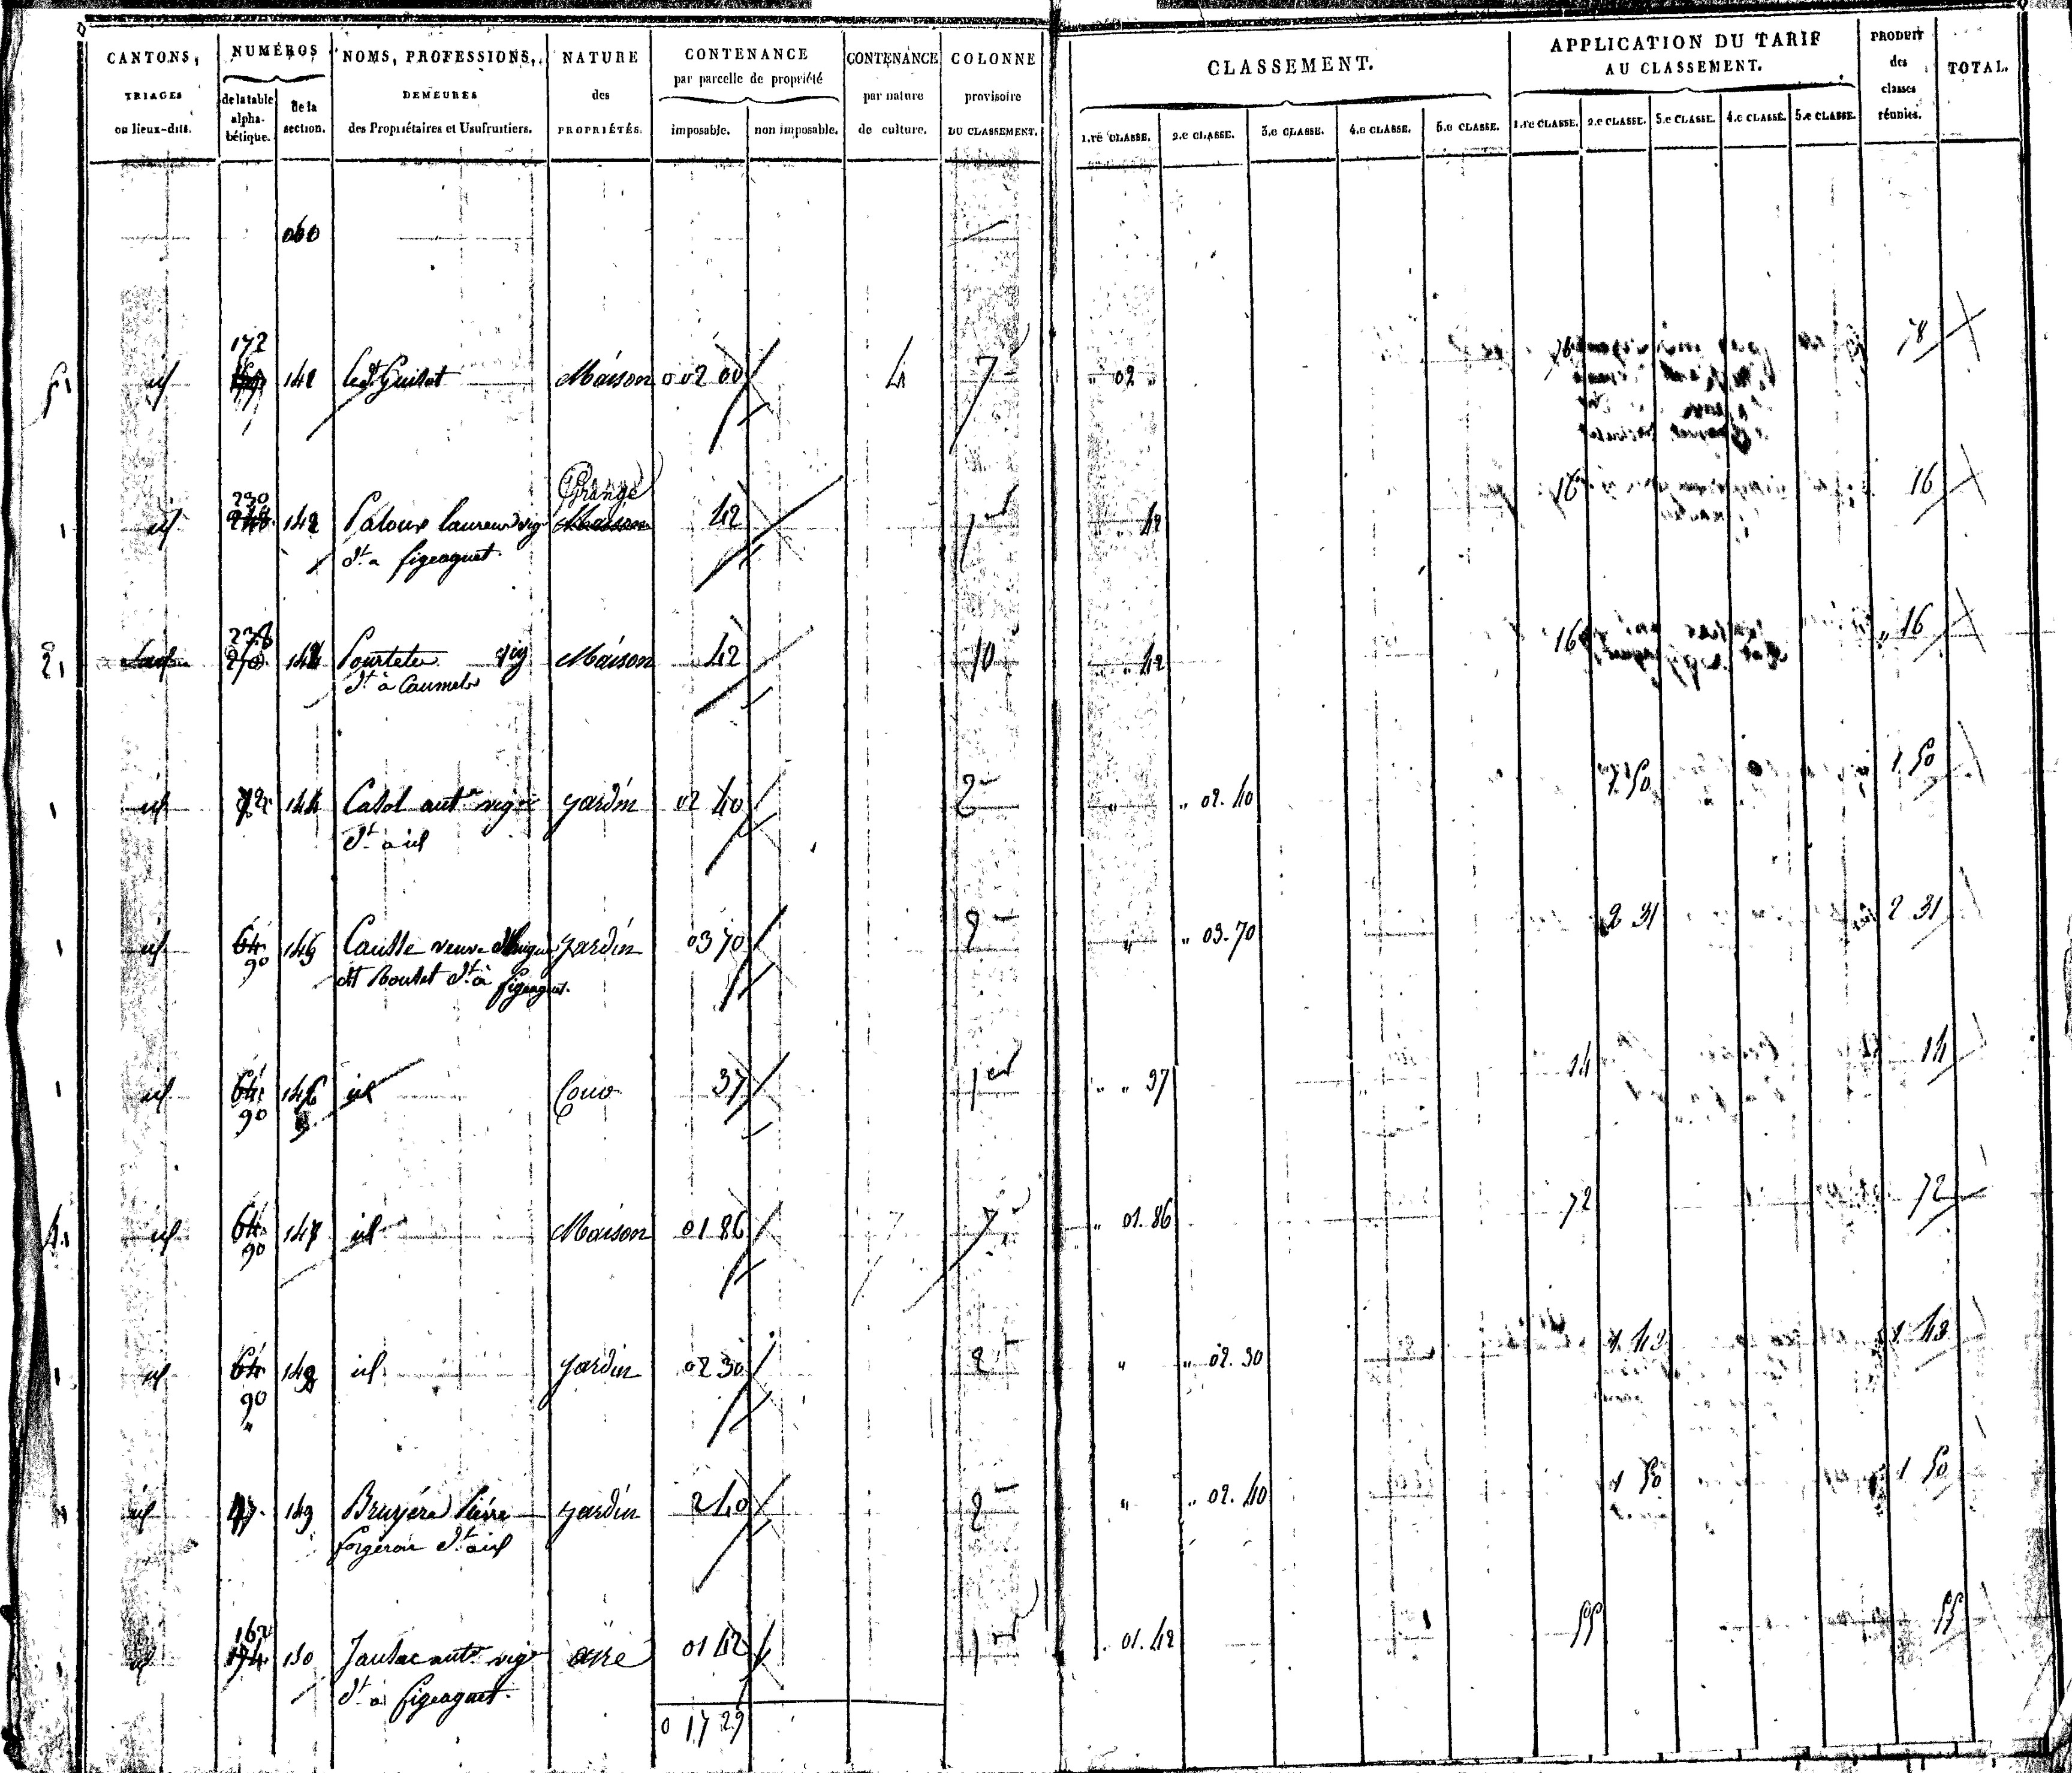 CANTONS, NUMÉROS NOMS, PROFESSIONS, NATURE CONTENANCE CONTENANCE COLONNE CLASSEMENT. APPLICATION DU TARIF PRODUIT TOTAL.
par parcelle de propriété AU CLASSEMENT. des
TRIAGES de la table de la DEMEURES des par nature provisoire classes
ou lieux-dits. alpha- section. des Propriétaires et Usufruitiers. PROPRIÉTÉS. imposable. non imposable. de culture. DU CLASSEMENT. 1.re CLASSE. 2.e CLASSE. 3.e CLASSE. 4.e CLASSE. 5.e CLASSE. 1.re CLASSE. 2.e CLASSE. 3.e CLASSE. 4.e CLASSE. 5.e CLASSE. réunies.
bétique.
060
172
id 141 Guitot Maison 0 02 00 4 7 " 02 " 78 78
230 Grange
id 248 142 Paloux laurens vig Maison 42 1er " 42 16 16
dt a figeaguet
238
270 Pourteler vig Maison 42 10 " " 42 16 " 16
dt à Caumels
id 72 144 Casol ant.e vig jardin 02 40 2 " " 02. 40 1. 50 1. 50
dt à id
id 64 145 Causse veuve jardin 03 70 2 " " 03. 70 2 31 2 31
90 dit Boutet dt à figeaguet.
id 64 146 id Cour 37 1er " " 37 14 14
90
4. id 64 147 id Maison 01 86 7 7 " 01. 86 72 72
90
id 64 148 id jardin 02 30 2 " " 02. 30 1. 43 1. 43
90
"
id 47. 149 Bruyére Pierre jardin 2 40 2 " " 02. 40 1 50 1 50
forgeron dt à id
162
id 174 150 Jausac ant.e vig aire 01 42 1 . 01. 42 55 55
dt à figeaguet.
0 17 29